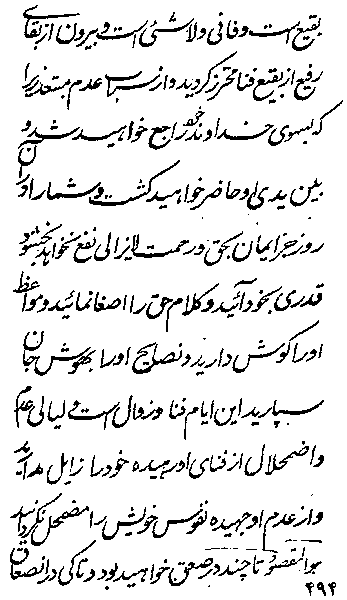 بقیع است و فانی و لاشئ است و بیرون از بقای
رفیع از بقیع فنا محترز گردید و از سراب عدم مبتعد زیرا
که بسوی خداوند خود راجع خواهید شد و
بین یدی او حاضر خواهید گشت و شما را در آن
روز جز ایمان بحق و رحمت لایزالی نفع نخواهد بخشود
قدری بخود آئید و کلام حق را اصغا نمائید و مواعظ
او را گوش دارید و نصایح او را بهوش جان
سپارید این ایام فنا و زوال است و لیالی عدم
و اضمحلال از فنای او رهیده خود را زایل مدانید
و از عدم او جهیده نفوس خویش را مضمحل نگردانید
هو المقصود تا چند در صعق خواهید بود و تا کی در انصعاق
۴۹۴